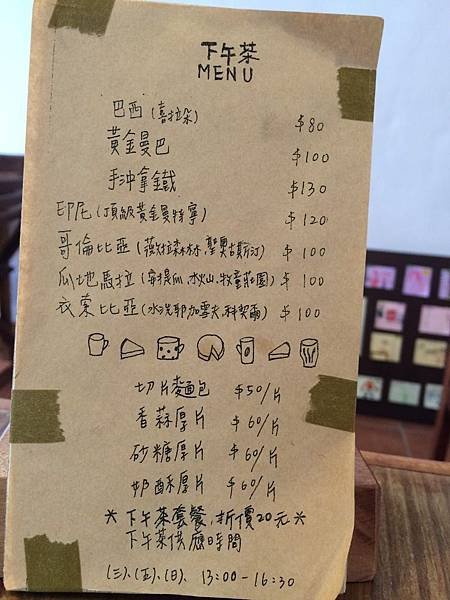 下午茶
MENU
巴西(喜拉朵) $80
黃金曼巴 $100
手沖拿鐵 $130
印尼(頂級黃金曼特寧) $120
哥倫比亞(薇拉森林,聖奧古斯汀) $100
瓜地馬拉(安提瓜,水火山,牧童莊園) $100
衣索比亞(水洗耶加雪夫,科契爾) $100
切片麵包 $50/片
香蒜厚片 $60/片
砂糖厚片 $60/片
奶酥厚片 $60/片
*下午茶套餐,折價20元*
下午茶供應時間
(三)、(五)、(日)、13:00-16:30